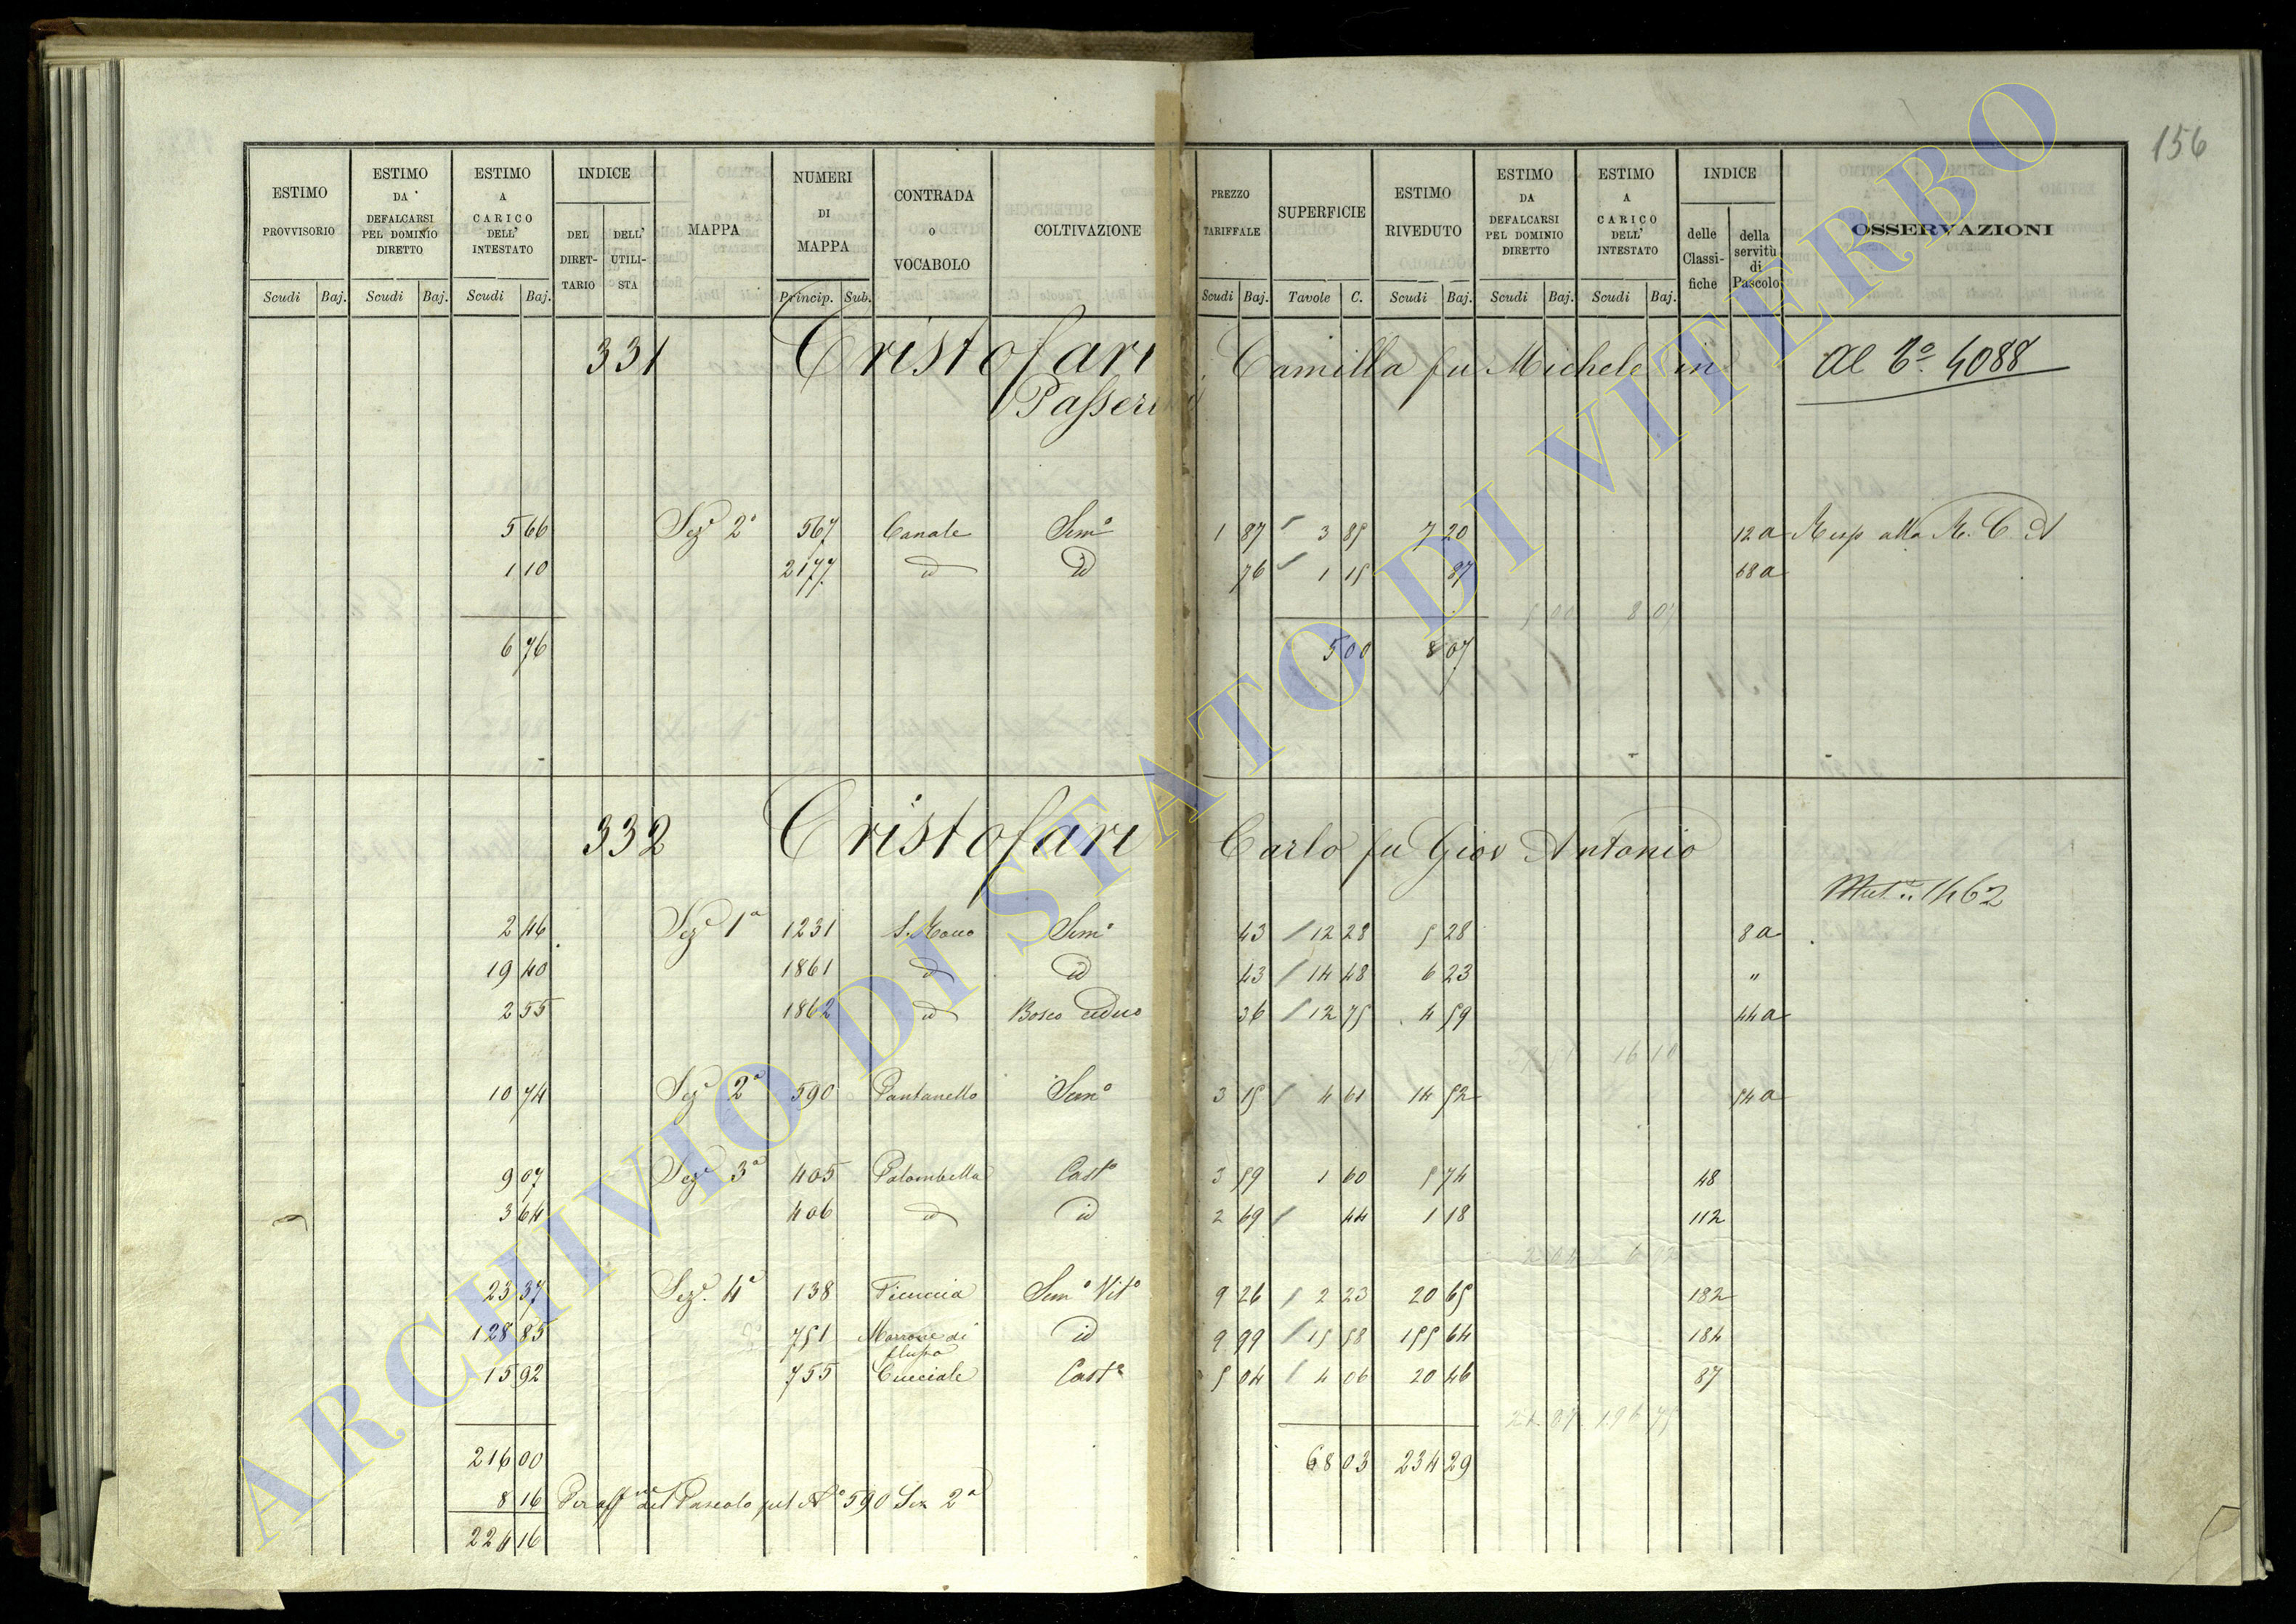 156
ESTIMO PROVVISORIO
ESTIMO DA DEFALCARSI PEL DOMINIO DIRETTO
ESTIMO A CARICO DELL' INTESTATO
INDICE
DEL DIRET-TARIO
DELL' UTILI-STA
MAPPA
NUMERI DI MAPPA
CONTRADA o VOCABOLO
COLTIVAZIONE
PREZZO TARIFFALE
SUPERFICIE
ESTIMO RIVEDUTO
ESTIMO DA DEFALCARSI PEL DOMINIO DIRETTO
ESTIMO A CARICO DELL' INTESTATO
INDICE
delle Classi-fiche
della servitù di Pascolo
OSSERVAZIONI
Scudi Baj. Scudi Baj. Scudi Baj. Princip. Sub. Scudi Baj. Tavole C. Scudi Baj. Scudi Baj. Scudi Baj.
331 Cristofari Camilla fu Michele in Al 4088
Passerini
5 66 Sez.e 2a 567 Canale Sem.o 1 87 3 85 7 20 12a Resp alla R. C. A
1 10 2177 id id 76 1 15 87 68a
5 00 8 07
6 76 5 00 8 07
332 Cristofari Carlo fu Giov Antonio
Mut.e 1462
2 46 Sez.e 1a 1231 S. Rocco Sem.o 43 12 28 5 28 8a
19 40 1861 id id 43 14 48 6 23 "
2 55 1862 id Bosco ceduo 36 12 75 4 59 44a
16 10
10 74 Sez.e 2a 590 Pantanello Sem.o 3 15 4 61 14 52 54a
9 07 Sez.e 3a 405 Palombella Cast.o 3 59 1 60 5 74 48
3 64 406 id id 2 69 44 1 18 112
2 04 6 92
23 37 Sez.e 4a 138 Ficuccia Sem.o Vit.o 9 26 2 23 20 65 182
128 85 751 Marrone di id 9 99 15 58 155 64 184
15 92 755 Cucciale Cast.o 5 04 4 06 20 46 87
21 87 196 75
216 00 68 03 234 29
8 16 Per aff.ne del Pascolo sul N.o 590 Sez 2a
224 16
ARCHIVIO DI STATO DI VITERBO